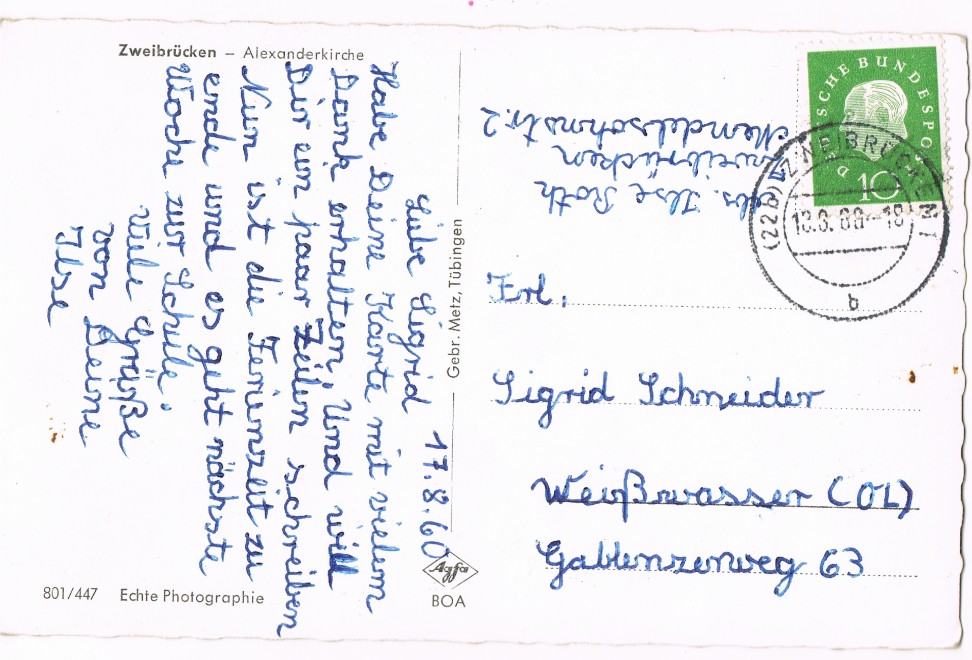 Zweibrücken – Alexanderkirche
17.8.60
Liebe Sigrid
Habe Deine Karte mit vielem
Dank erhalten. Und will
Dir ein paar Zeilen schreiben
Nun ist die Ferienzeit zu
ende und es geht nächste
Woche zur Schule.
Viele Grüße
von Deine
Ilse
801/447 Echte Photographie
Agfa
BOA
Gebr. Metz, Tübingen
Abs. Ilse Roth
Zweibrücken
Mendelsohnstr. 2
DEUTSCHE BUNDESPOST
10
(22b) ZWEIBRÜCKEN 1
b
Frl.
Sigrid Schneider
Weißwasser (OL)
Gablenzerweg 63